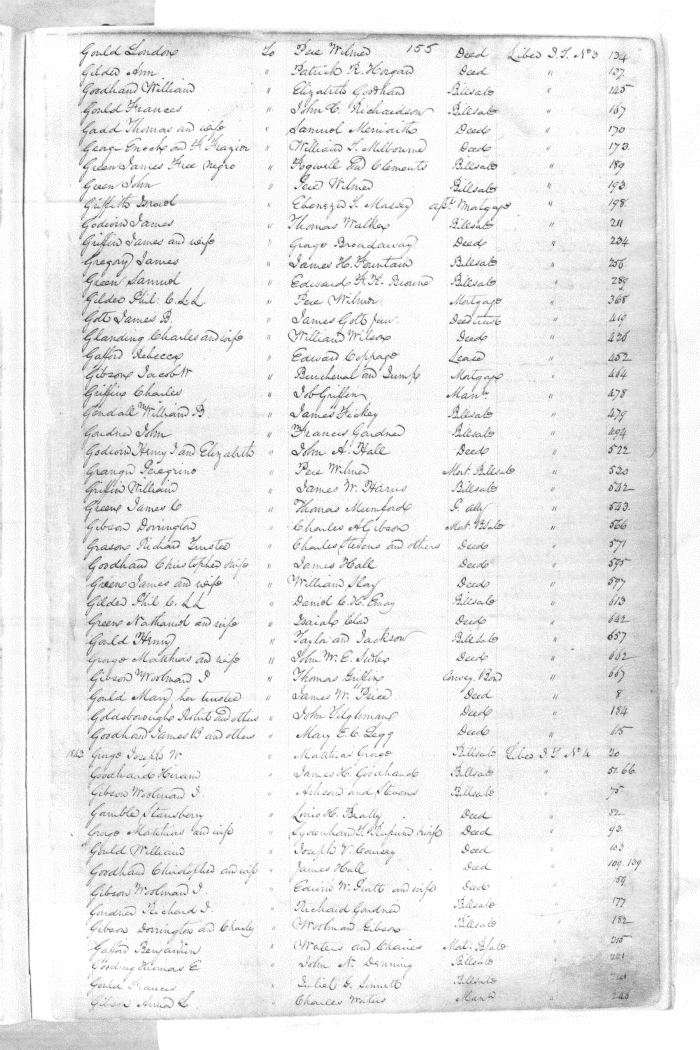 155
Gould London To Pere Wilmer Deed Liber J.T. No 3 134
Gilder Ann " Patrick R. Horgan Deed " 137
Goodhand William " Elizabeth Goodhan Billsale " 145
Gould Frances " John C. Richardson Billsale " 167
Gadd Thomas and wife " Samuel Meriaith Deed " 170
George Enoch and F. Frazior " William T. Milbourne Deed " 173
Green James Free Negro " Fogwell and Clements Billsale " 189
Green John " Pere Wilmer Billsale " 193
Griffith Israel " Ebenezer T. Massey Mortgage " 198
Godwin James " Thomas Walker Billsale " 211
Griffin James and wife " George Broadaway Deed " 234
Gregory James " James H. Fountain Billsale " 256
Green Samuel " Edward H. Browne Billsale " 289
Gilder Phil. C. LL " Pere Wilmer Mortgage " 368
Gott James B. " James Gott Jun. Deed trust " 419
Glanding Charles and wife " William Wilson Deed " 426
Gafford Rebecca " Edward Coppage Lease " 452
Gibson Jacob W " Burchenal and Jump Mortgage " 464
Griffin Charles " Job Griffin Man. " 478
Gendall Wm William B " James Hickey Billsale " 479
Gardner John " Francis Gardner Billsale " 494
Godwin Henry J and Elizabeth " John A. Hall Deed " 522
Granger Peregrine " Pere Wilmer Mort. Billsale " 530
Griffin William " James W. Harris Billsale " 542
Green James C " Thomas Mumford " 543
Gibson Dorrington " Charles A Gibson " 566
Grason Richard Trustee " Charles Stevens and others Deed " 571
Goodhand Christopher wife " James Hall Deed " 595
Green James and wife " William Slay Deed " 597
Gilder Phil. C. LL " Daniel C. H. Emory Billsale " 613
Green Nathaniel and wife " Isaiah Deed " 642
Gould Henry " Taylor and Jackson Billsale " 657
George Matthias and wife " John W. E. Sudler Deed " 662
Gibson Woolman J " Thomas Griffin Convey. Bond " 667
Gould Mary her trustee " James W. Price Deed " 8
Goldsborough Robert and others " John Tilghman Deed " 184
Goodhand James B and others " Mary E. C. Legg Deed " 615
1843 George Joseph W " Matthias George Billsale Liber J.T. No 4 20
Goodhand Hiram " James H. Goodhand Billsale " 51.66
Gibson Woolman J. " and Stevens Billsale " 75
Gamble Stansberry " Louis H. Beatty Deed " 82
George Matthias and wife " Deed " 93
Gould William " Joseph V. Coursey Deed " 103
Goodhand Christopher and wife " James Hall Deed " 109.139
Gibson Woolman J. " Edwin W. Pratt and wife Deed " 159
Gardner Richard J. " Richard Gardner Billsale " 177
Gibson Dorrington and Charley " Woolman Gibson Billsale " 182
Gafford Benjamin " Waters and "
Gooding Thomas E " John N. Denning Billsale "
Gould Francis " Juliet D. Sinnett Billsale "
Gibson " Charles Waters Man. " 243